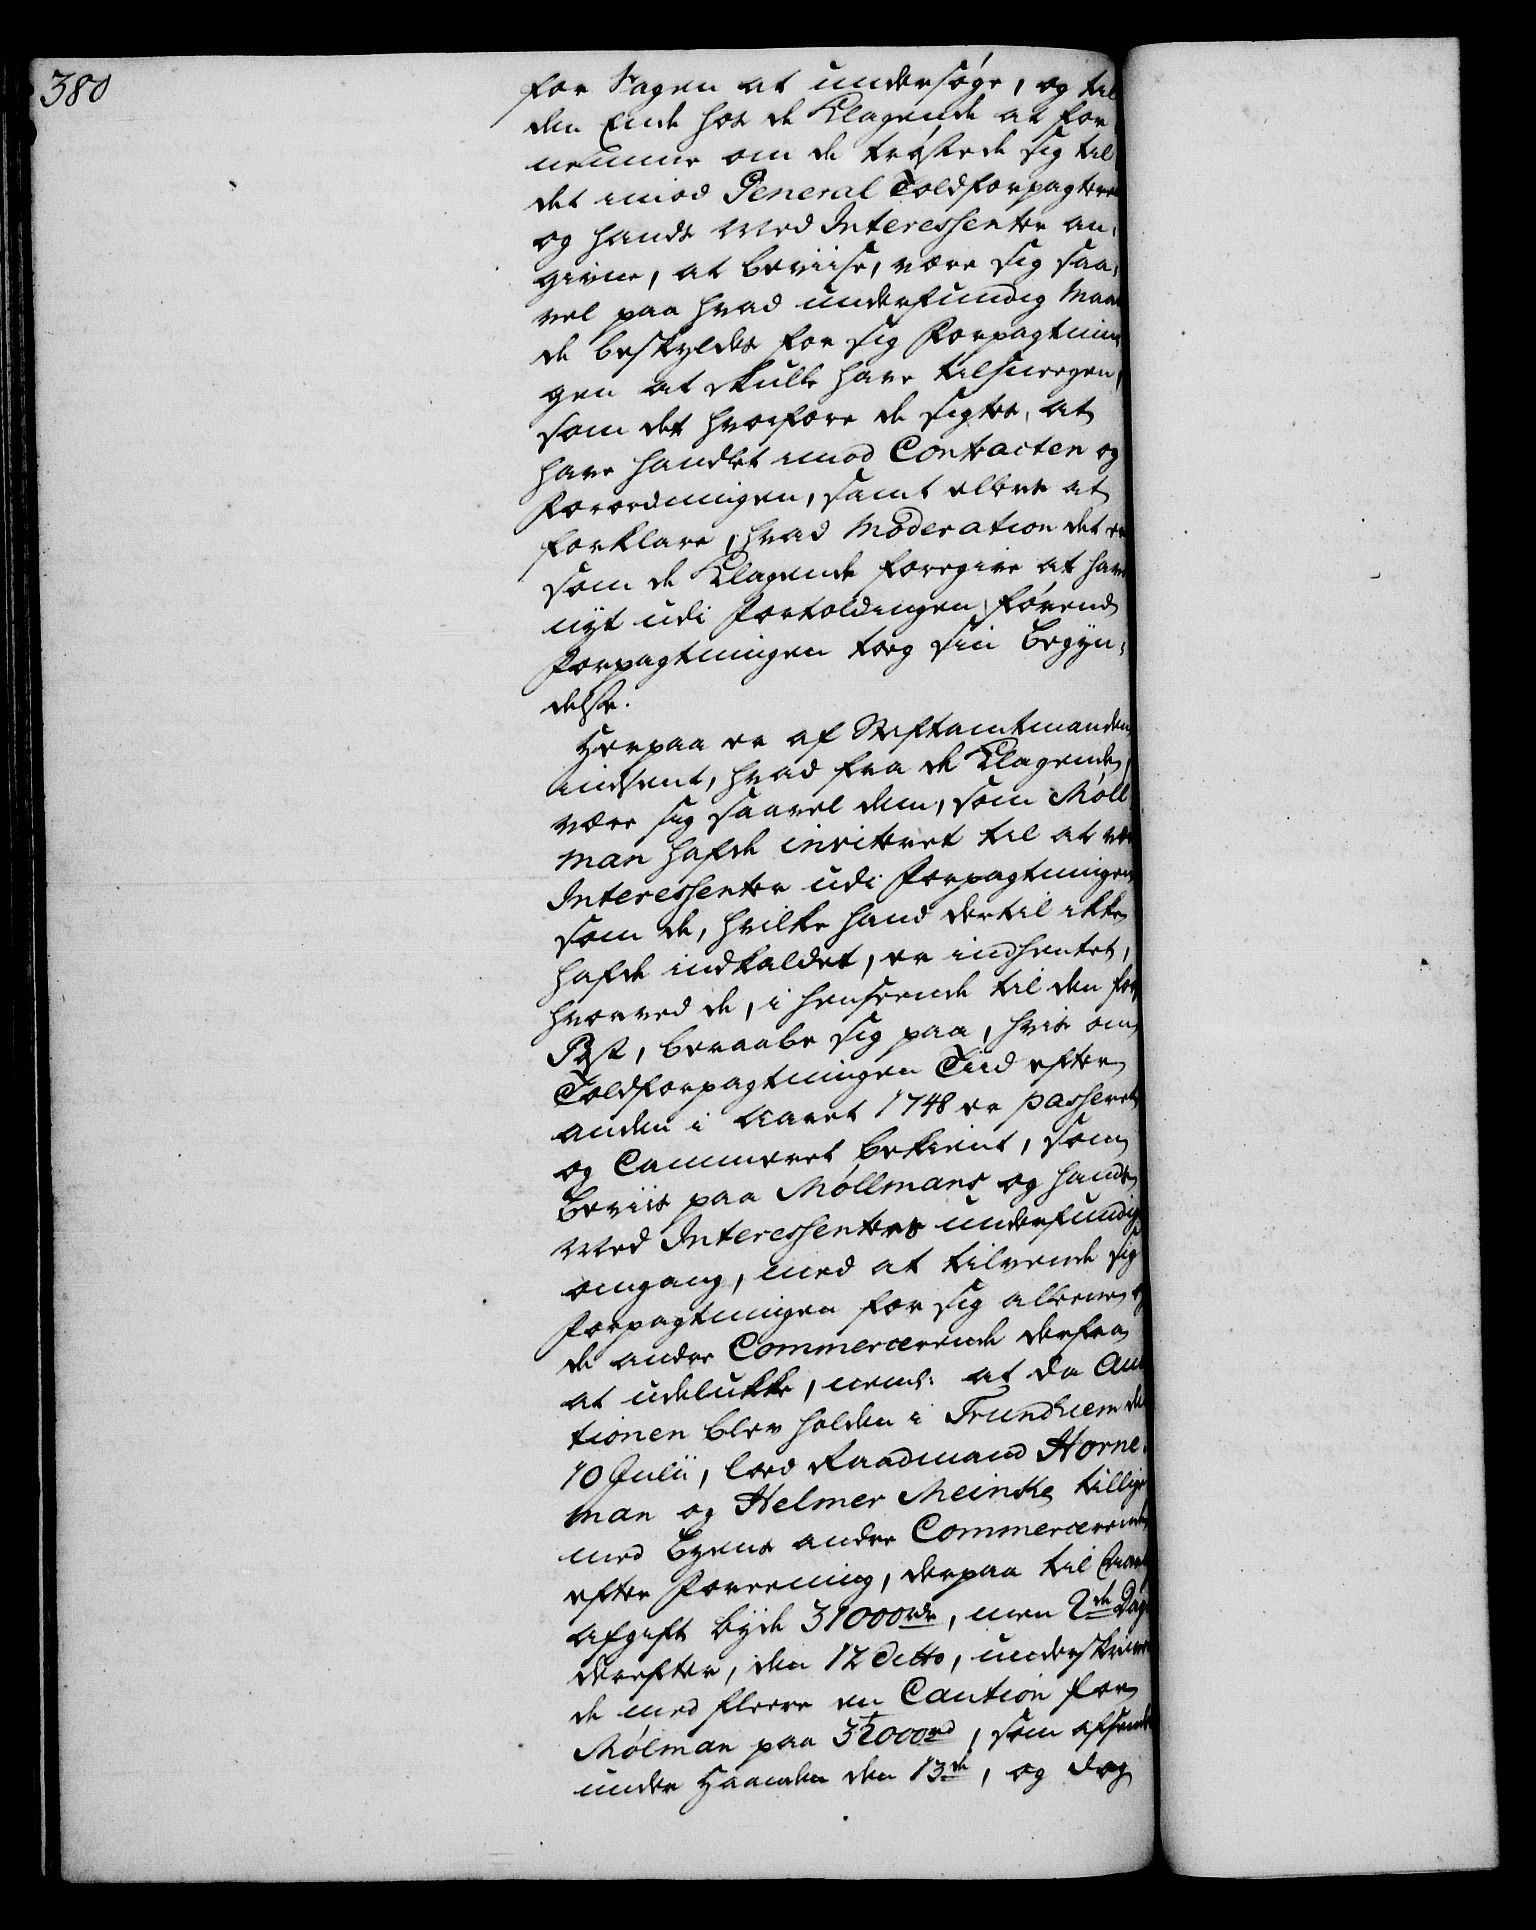 380
for Sagen at undersøge, og til
den Ende hos de Klagende at for
nemme om de trøstede sig til
det imod General Toldforpagteren
og hands Med Interessentere an-
givne, at beviise, være sig saa-
vel paa hvad underfundig Maade
de beskyldes for sig Forpagtnin-
gen at skulle have tilsneegen,
som det hvorfore de sigtes, at
have handlet imod Contracten og
Forordningen, samt ellers at
forklare, hvad Moderation det er
som de Klagende foregive at have
nyt udi Fortoldingen, førend
Forpagtningen tog sin Begyn-
delse.
Herpaa er af Stiftamtmanden
indsent, hvad fra de Klagende,
være sig saavel dem, som Möll
man hafde inviteret til at være
Interessentere udi Forpagtningen
som de, hvilke hand dertil ikke
hafde indkaldet, er indhentet,
hvorved de, i henseende til den første
Post, beraabe sig paa, hvis om
Toldforpagtningen Tiid efter
anden i Aaret 1748 er passeret
og Cammeret bekient, som
Beviis paa Möllmans og hands
Med Interessenters underfundige
omgang, med at tilvende sig
Forpagtningen for sig alleene og
de andre Commercerende derfra
at udelukke, neml: at da Auc
tionen blev holden i Trundhiem den
10 Julii, lod Raadmand Horne-
man og Helmer Meincke tillige
med Byens andre Commercerende
efter Foreening, derpaa til Aarl
Afgift byde 31000 rdr, men 2de Dage
derefter, den 12 ditto, underskriver
de med fleere en Caution for
Mölman paa 35000 rd, som afsendes
under Haanden den 13de, og dog